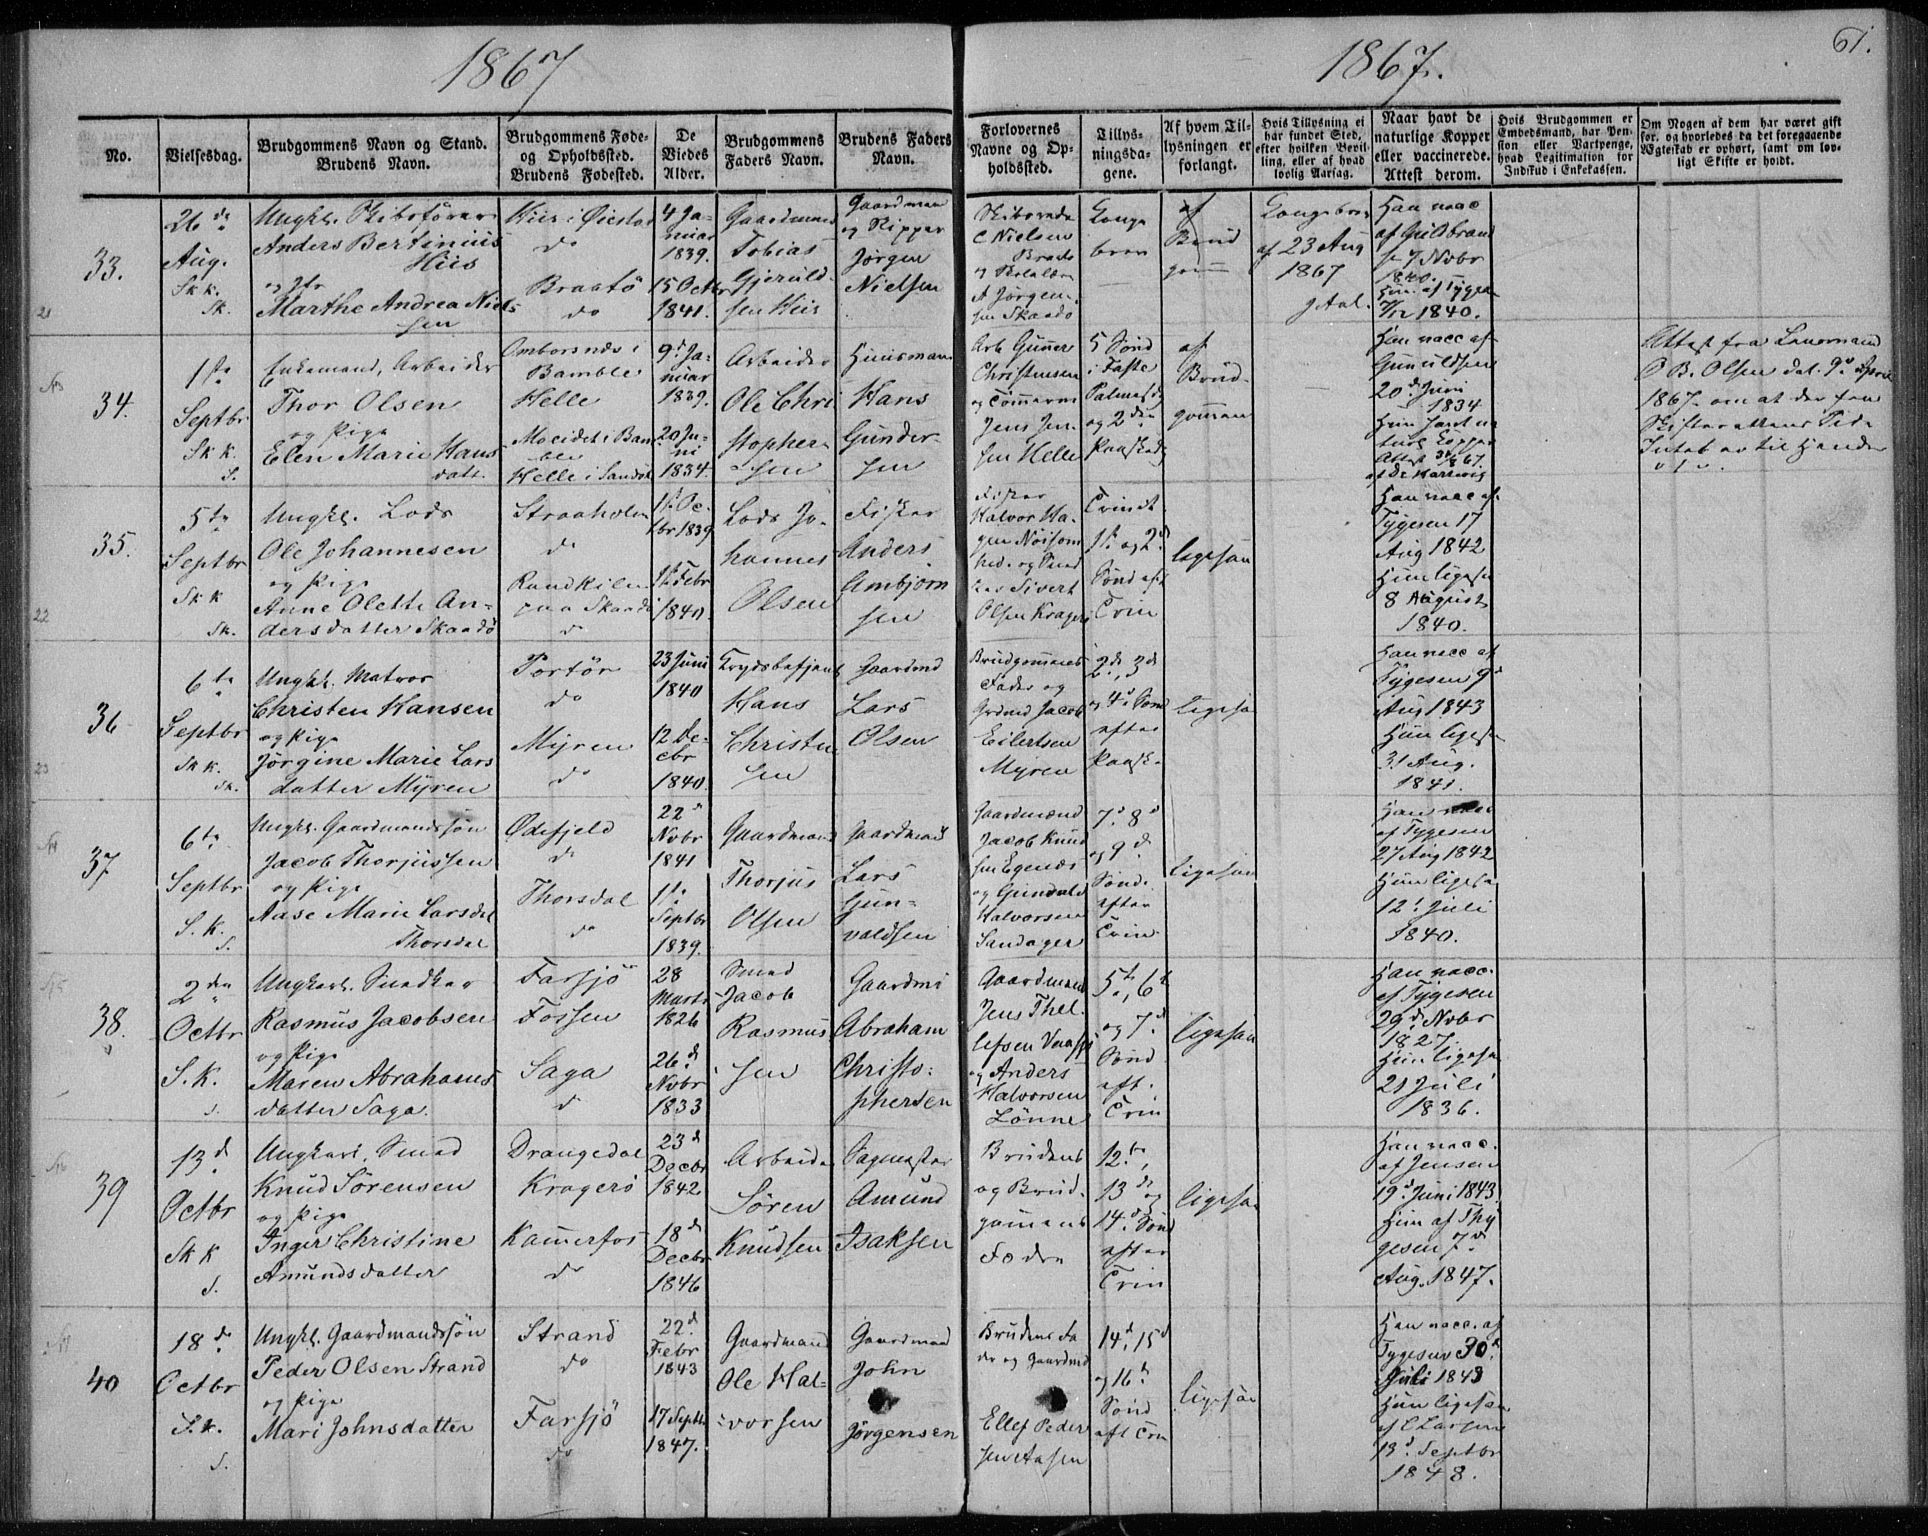 1867
1867.
61.
No.
Vielsesdag.
Brudgommens Navn og Stand.
Brudens Navn.
Brudgommens Føde-
og Opholdssted.
Brudens Fødested.
De
Viedes
Alder.
Brudgommens
Faders Navn.
Brudens Faders
Navn.
Forlovernes
Navne og Op-
holdssted.
Tillys-
ningsda-
gene.
Af hvem Til-
lysningen er
forlangt.
Hvis Tillysning ei
har fundet Sted,
efter hvilken Bevil-
ling, eller af hvad
lovlig Aarsag.
Naar havt de
naturlige Kopper
eller vaccinerede.
Attest derom.
Hvis Brudgommen er
Embedsmand, har Pen-
sion eller Vartpenge,
hvad Legitimation for
Indskud i Enkekassen.
Om Nogen af dem har været gift
før, og hvorledes da det foregaaende
Ægteskab er ophørt, samt om lov-
ligt Skifte er holdt.
33.
26de
Aug.
Sk k.
Sk.
Ungkl. Skibsfører
Anders Bertinius
Hiis
og Jfr
Marthe Andrea Niel-
sen
Hiis i Øiestad
do
Braatö
do
4 Ja-
nuar
1839.
15 Octbr
1841.
Gaardmand
Tobias
Gjeruld-
sen Hiis
Gaardmand
og Skipper
Jørgen
Nielsen
Skibsrede
C Nielsen
Braatö
A Jörgen-
sen Skaadö
Konge
brev
af
Brud
gom
Kongebrev
af 23 Aug
1867
Han vacc
af Gilbrand
7 Novbr
1840.
Hun af Tygesen
1840.
34.
1ste
Septbr
Sk k.
S.
Enkemand, Arbeider
Thor Olsen
og Pige
Elen Marie Hans
datt.
Omborsnes i
Bamble
Helle
Helle i Sandö
9de Ja-
nuar
1839.
20 Ju-
ni
1834.
Arbeider
Ole Chri
stopher-
sen
Huusmand
Hans
Gunder-
sen
Arb Gunner
Christensen
og Tømmerm
Jens Jen-
sen Helle
5 Sönd
i Faste
Palmesd
og 2den
Paaskedg
af
Brud-
gommen
Han vacc af
Gunuldsen
20de Juni
1834
Hun havt na
turl Kopper
Attest 67.
Attest fra Lensmand
O B. Olsen dat. 9de April
1867. om at der fra
Skifterettens Side
Intet er til Hinder
35.
5te
Septbr
Sk k
Sk.
Ungkl. Lods
Ole Johannesen
og Pige
Anne Olette An-
dersdatter Skaadö
Straaholm
do
paa Skaadö
do
1ste Oc-
tbr 1839
1ste Febr
1840.
Lods Jo-
hannes
Olsen
Fisker
Anders
Ambjörn
sen
Fisker
Halvor Ha-
gen Nöisom
hed. og
Sivert
Olsen Kragerö
Trinit.
1ste og 2d
Sönd eft
Trin
ligesaa
Han vacc af
Tygesen 17
Aug 1842
Hun ligesaa
8 August
1840.
36
6te
Septbr
Sk k.
Sk.
Ungkl. Matros
Christen Hansen
og Pige
Jörgine Marie Lars
datter Myren
Portör
do
Myren
do
23 Juni
1840
12 De-
cbr
1840.
Krydsbetjent
Hans
Christen
sen
Gaardmd
Lars
Olsen
Brudgommens
Fader og
Grdmd Jacob
Eilertsen
Myren
2de, 3de
og 4de Sönd
efter
Paaske
ligesaa
Han vacc af
Tygesen 9de
Aug 1843
Hun ligesaa
31 Aug.
1841.
37
6te
Septbr
S. k.
S.
Ungkl. Gaardmandssön
Jacob Thorjussen
og Pige
Aase Marie Larsdat
Thorsdal
Ødefjeld
do
Thorsdal
do
22de
Novbr
1841
11te
Septbr
1839.
Gaardmand
Thorjus
Olsen
Gaardmand
Lars
Gun-
valdsen
Gaardmænd
Jacob Knud
sen Egenæs
og Gunvald
Halvorsen
Sandager
7de 8de
og 9de
Sönd.
efter
Trin
ligesaa
Han vacc
af Tygesen
27 Aug 1842
Hun ligesaa
12te Juli
1840.
38.
2den
Octbr
S. k.
S.
Ungkarl. Snedker
Rasmus Jacobsen
og Pige
Maren Abrahams
datter Saga.
Farsjö
Fossen
Saga
do
28
Marts
1826
26de
Novbr
1833
Smed
Jacob
Rasmus
sen
Gaardmd
Abraham
Christo-
phersen
Gaardmænd
Jens Thel-
lefsen
og Anders
Halvorsen
Lönne
5te, 6te
og 7de
Sönd
eft.
Trin
ligesaa
Han vacc.
af Tygesen
29de Novbr
1827.
Hun ligesaa
21 Juli
1836.
39
13de
Octbr
Sk k
S.
Ungkarl. Smed
Knud Sörensen
og Pige
Inger Christine
Amundsdatter
Drangedal
Kragerö
Kammerfos
do
23de
Decbr
1842
18de
Decbr
1846
Arbeider
Sören
Knudsen
Sagmester
Amund
Isaksen
Brudens
og Brud-
gommens
Fædre
12te,
13de og
14de Sönd
efter
Trin
ligesaa
Han vacc.
af Jensen
19de Juni 1843
Hun af Thy
gesen 7de
Aug. 1847.
40
18de
Octbr
S. k.
S.
Ungkl. Gaardmandssön
Peder Olsen Strand
og Pige
Mari Johnsdatter
Strand
do
Farsjö
do
22de
Febr
1843
17 Septbr
1847.
Gaardmand
Ole Hal-
vorsen
Gaardmand
John
Jörgensen
Brudens Fa
der og Gaardmd
Ellef Peder
sen Aasen
14de, 15de
og 16de
Sönd
eft Trin
ligesaa
Han vacc. af
Tygesen 30de
Juli 1843
Hun ligesaa
af C Larsen
13de Septbr
1848.